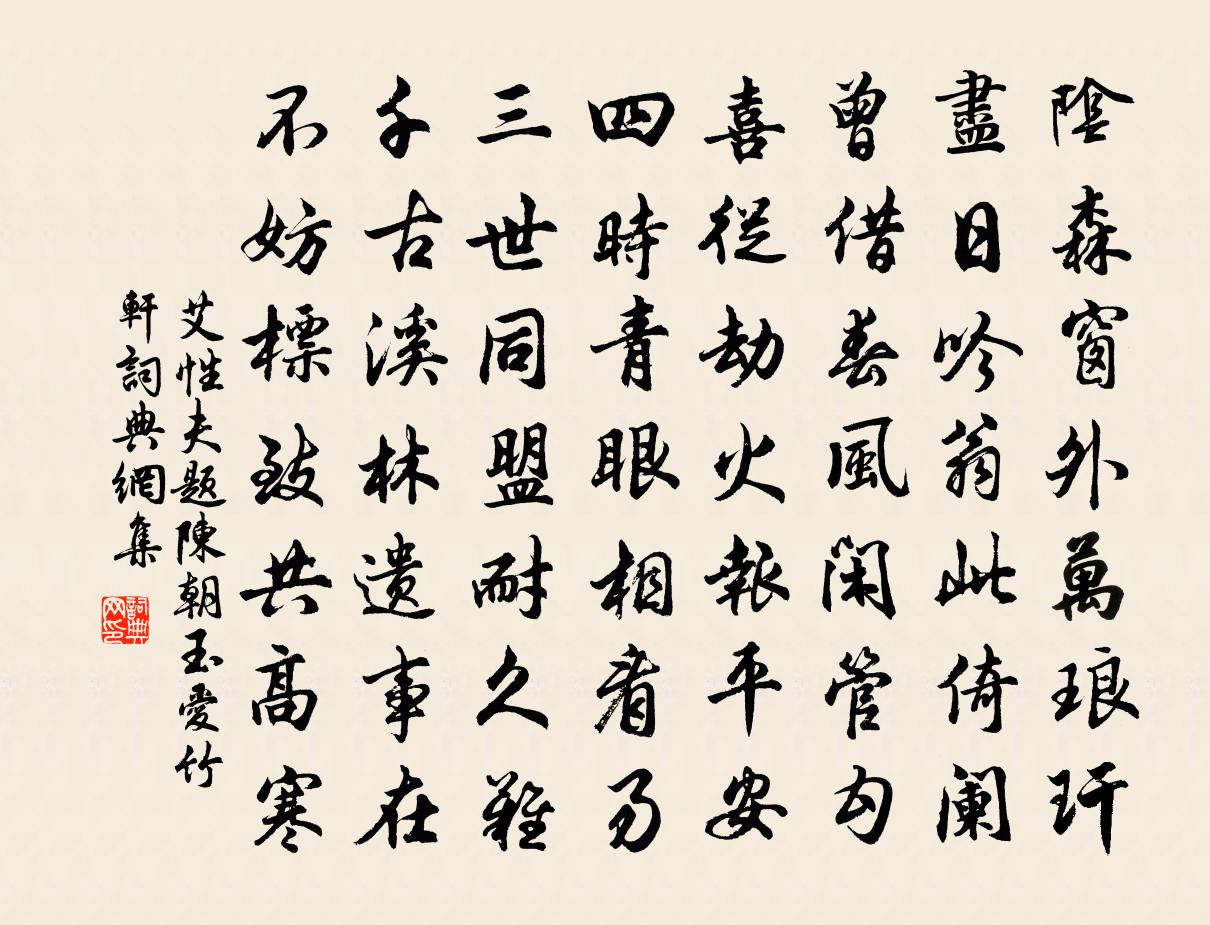 陰森窗外萬琅玕
盡日吟翁此倚闌
曾借春風閑管句
喜從劫火報平安
四時青眼相看易
三世同盟耐久難
千古溪林遺事在
不妨標致共高寒
艾性夫題陳朝玉愛竹
軒詞典網集
詞典
网印